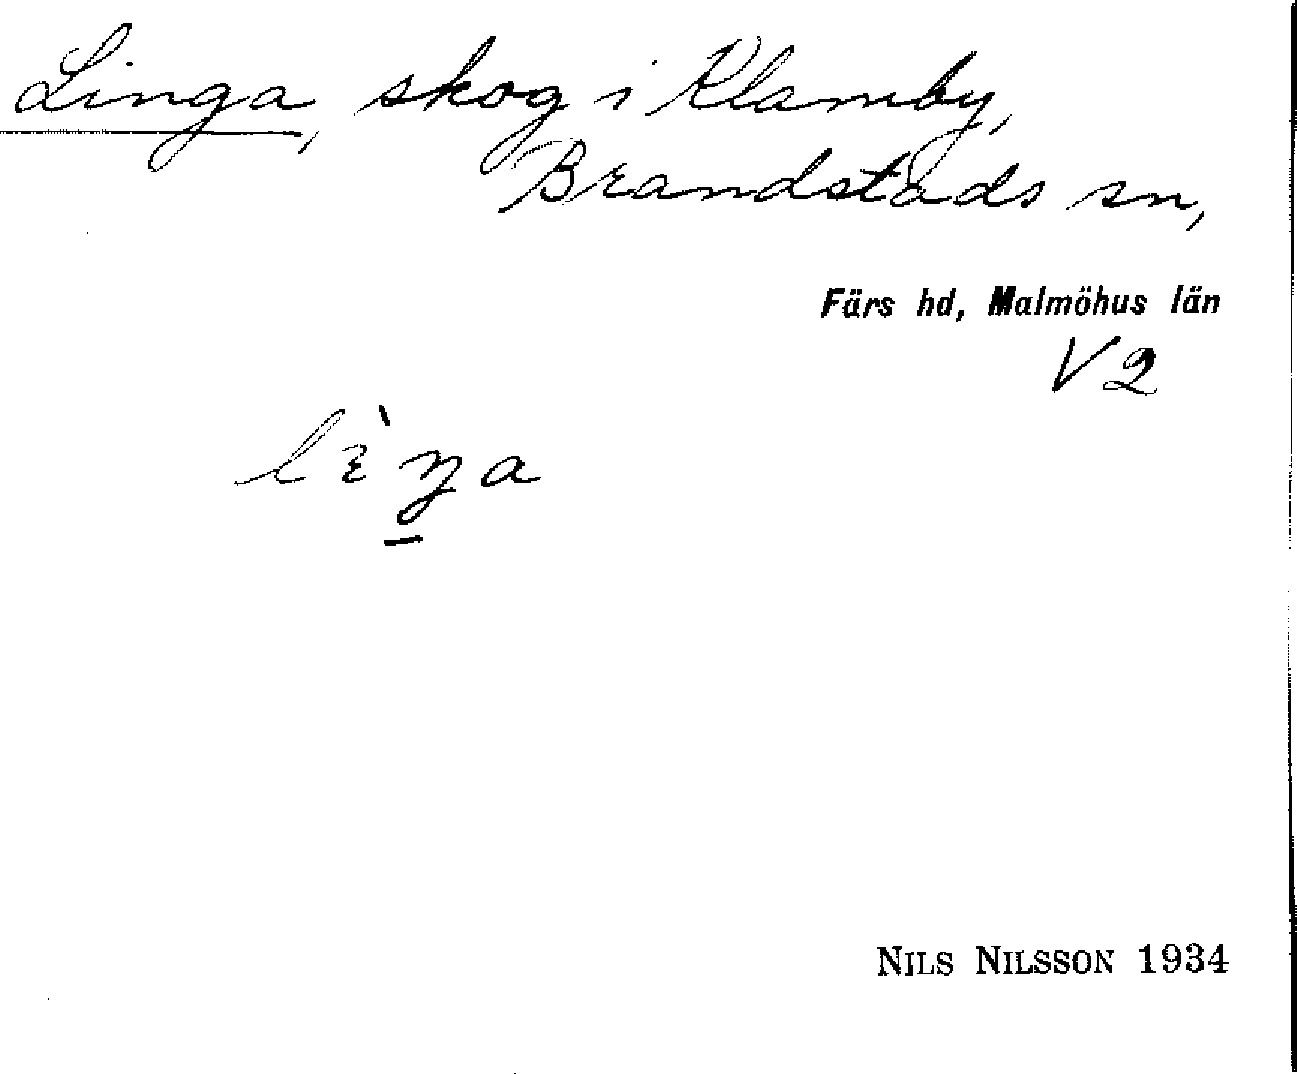 Linga, skog i Klamby,
Brandstads sn,
Färs hd, Malmöhus län
V2
lὲŋa
NILS NILSSON 1934